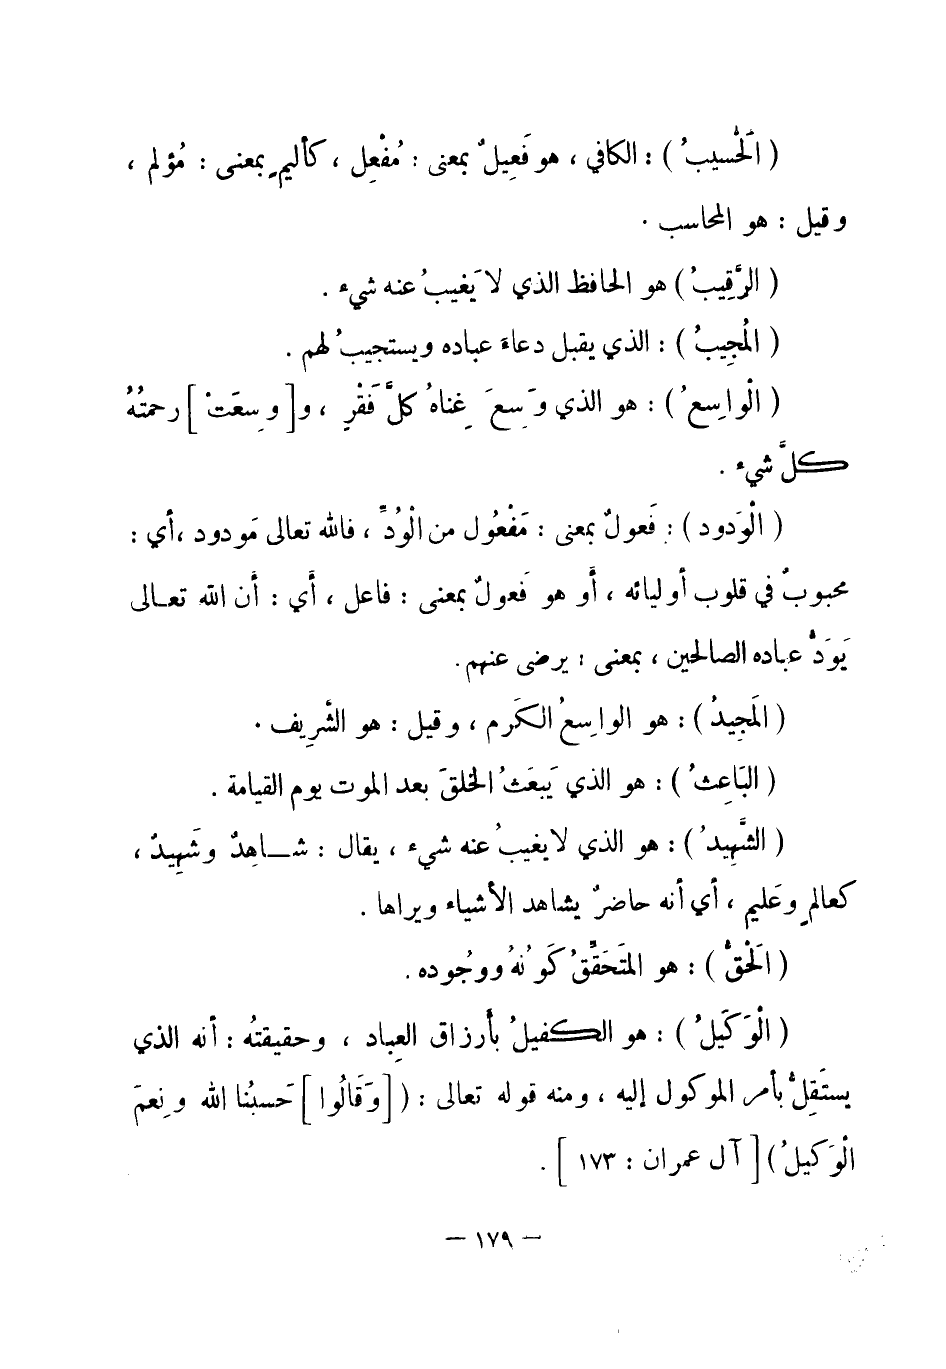 ( الَحْسيبُ ) : الكافي ، هو فَعِيلٌ بمعنى : مُفْعِل ، كأليمٍ بمعنى : مُؤلم ،
وقيل : هو المحاسب .
( الرَّقِيبُ ) هو الحافظ الذي لا يَغيبُ عنه شيء .
( المُجِيبُ ) : الذي يقبل دعاءَ عباده ويستجيبُ لهم .
( الْواسِعُ ) : هو الذي وَسِعَ غِناهُ كلَّ فَقْرٍ ، و [ وسِعَتْ ] رحمتُهُ
كلَّ شيء .
( الْوَدود ) : فَعولٌ بمعنى : مَفْعُول من الْوُدِّ ، فالله تعالى مَودود ، أي :
محبوبٌ في قلوب أوليائه ، أو هو فَعولٌ بمعنى : فاعل ، أي : أن الله تعالى
يَوَدُّ عباده الصالحين ، بمعنى : يرضى عنهم .
( المَجِيدُ ) : هو الواسِعُ الكَرم ، وقيل : هو الشَّرِيف .
( البَاعِثُ ) : هو الذي يَبعَثُ الخلقَ بعد الموت يوم القيامة .
( الشَّهِيدُ ) : هو الذي لا يغيبُ عنه شيء ، يقال : شاهِدٌ وشَهِيدٌ ،
كعالمٍ وعَليم ، أي أنه حاضرٌ يشاهد الأشياء ويراها .
( الَحْقُّ ) : هو المتَحَقِّقُ كَونُهُ ووجُوده .
( الْوَكَيلُ ) : هو الكفيلُ بأرزاق العِباد ، وحقيقتهُ : أنه الذي
يستَقِلُّ بأمر الموكول إليه ، ومنه قوله تعالى : ( [ وَقَالُوا ] حَسبُنا الله ونِعمَ
الْوَكيلُ ) [ آل عمران : ١٧٣ ] .
— ١٧٩ —